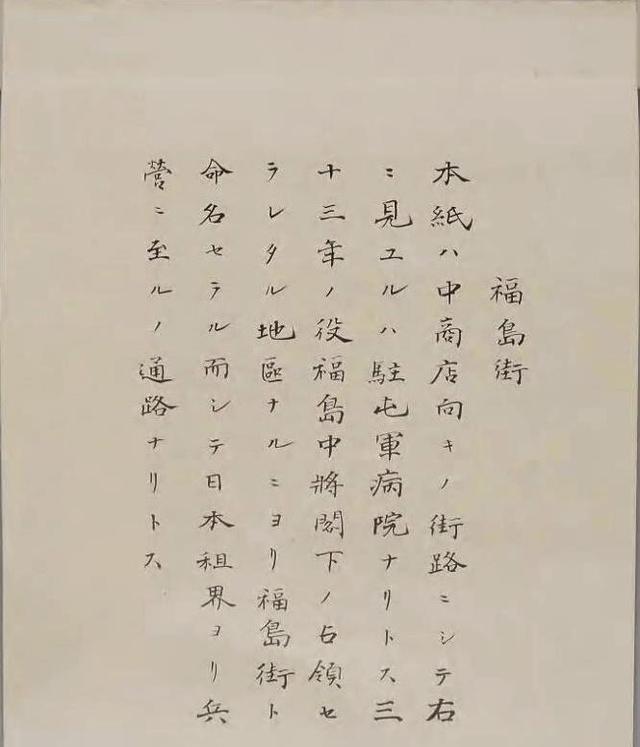 福島街
本紙ハ中商店向キノ街路ニシテ右
ニ見ユルハ駐屯軍病院ナリトス三
十三年ノ役福島中將閣下ノ占領セ
ラレタル地區ナルニヨリ福島街ト
命名セラル而シテ日本租界ヨリ兵
營ニ至ルノ通路ナリトス